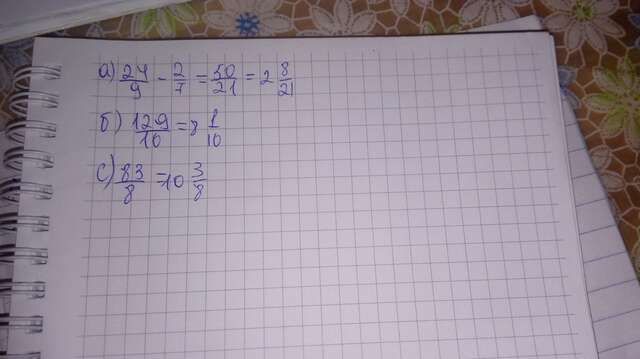 а) 24/9 - 2/7 = 50/21 = 2 8/21
б) 129/16 = 8 1/10
с) 83/8 = 10 3/8